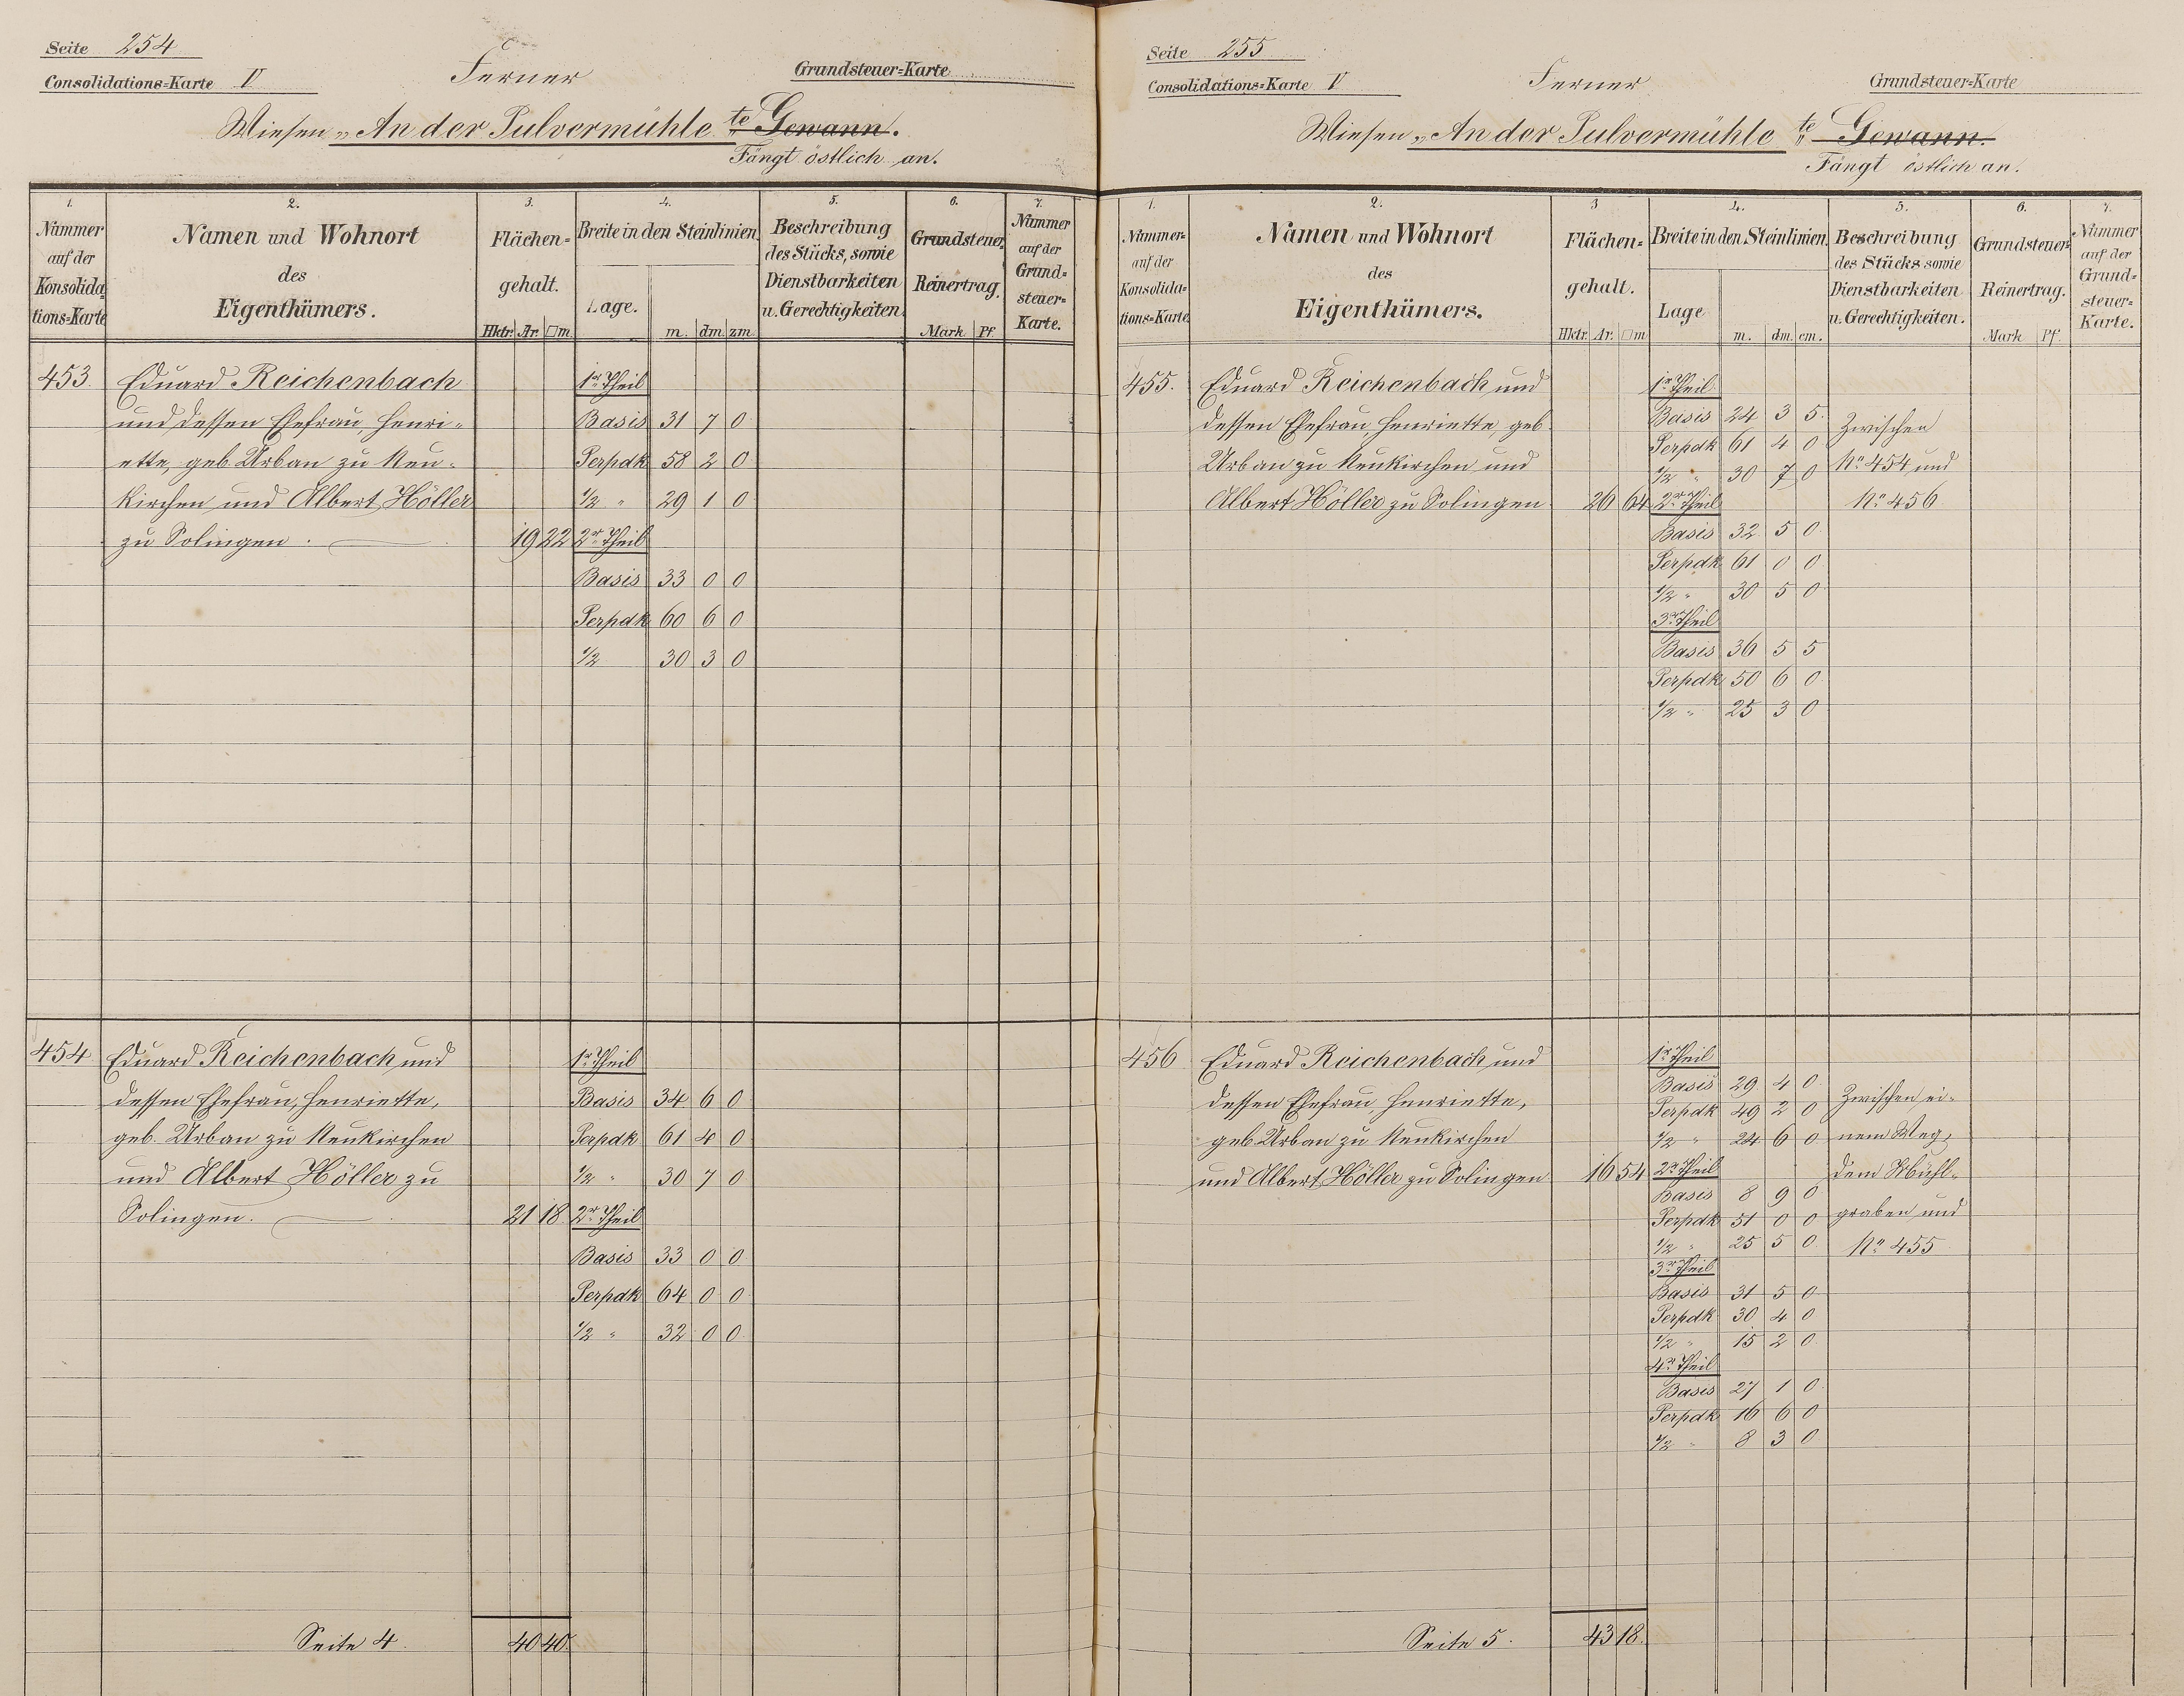 Seite 254
Consolidations=Karte V
Ferner
Grundsteuer=Karte
Wiesen „An der Pulvermühle" te Gewann.
Fängt östlich an.
1. 2. 3. 4. 5. 6. 7.
Nummer auf der Konsolida=tions=Karte
Namen und Wohnort des Eigenthümers.
Flächen=gehalt.
Hktr. Ar. □m.
Breite in den Steinlinien.
Lage. m. dm. zm.
Beschreibung des Stücks, sowie Dienstbarkeiten u. Gerechtigkeiten
Grundsteuer Reinertrag.
Mark Pf.
Nummer auf der Grund=steuer=Karte.
453. Eduard Reichenbach 1r Theil
und dessen Ehefrau, Henri= Basis 31 7 0
ette, geb. Urban zu Neu= Perpdk 58 2 0
kirchen und Albert Höller 1/2 " 29 1 0
zu Solingen. 19 22 2r Theil
Basis 33 0 0
Perpdk 60 6 0
1/2 30 3 0
454 Eduard Reichenbach und 1r Theil
dessen Ehefrau, Henriette, Basis 34 6 0
geb. Urban zu Neukirchen Perpdk 61 4 0
und Albert Höller zu 1/2 " 30 7 0
Solingen. 21 18 2r Theil
Basis 33 0 0
Perpdk 64 0 0
1/2 " 32 0 0
Seite 4. 40 40.
Seite 255
Consolidations=Karte V
Ferner
Grundsteuer=Karte
Wiesen „An der Pulvermühle" te Gewann.
Fängt östlich an.
1. 2. 3 4. 5. 6. 7.
Nummer auf der Konsolida=tions=Karte
Namen und Wohnort des Eigenthümers.
Flächen=gehalt.
Hktr. Ar. □m
Breite in den Steinlinien.
Lage m. dm. cm.
Beschreibung des Stücks sowie Dienstbarkeiten u. Gerechtigkeiten.
Grundsteuer= Reinertrag.
Mark Pf.
Nummer auf der Grund=steuer=Karte.
455. Eduard Reichenbach und 1r Theil
dessen Ehefrau, Henriette, geb. Basis 24 3 5. Zwischen
Urban zu Neukirchen und Perpdk 61 4 0 No 454 und
1/2 " 30 7 0
Albert Höller zu Solingen 26 64 2r Theil No 456
Basis 32 5 0
Perpdk 61 0 0
1/2 " 30 5 0
3r Theil
Basis 36 5 5
Perpdk 50 6 0
1/2 " 25 3 0
456 Eduard Reichenbach und 1r Theil
Basis 29 4 0
dessen Ehefrau, Henriette, Perpdk 49 2 0 Zwischen ei=
geb. Urban zu Neukirchen 1/2 " 24 6 0 nem Weg,
und Albert Höller zu Solingen 16 54 2r Theil dem Mühl=
Basis 8 9 0
Perpdk 51 0 0 graben und
1/2 " 25 5 0 No 455
3r Theil
Basis 31 5 0
Perpdk 30 4 0
1/2 " 15 2 0
4r Theil
Basis 27 1 0
Perpdk 16 6 0
1/2 " 8 3 0
Seite 5. 43 18.